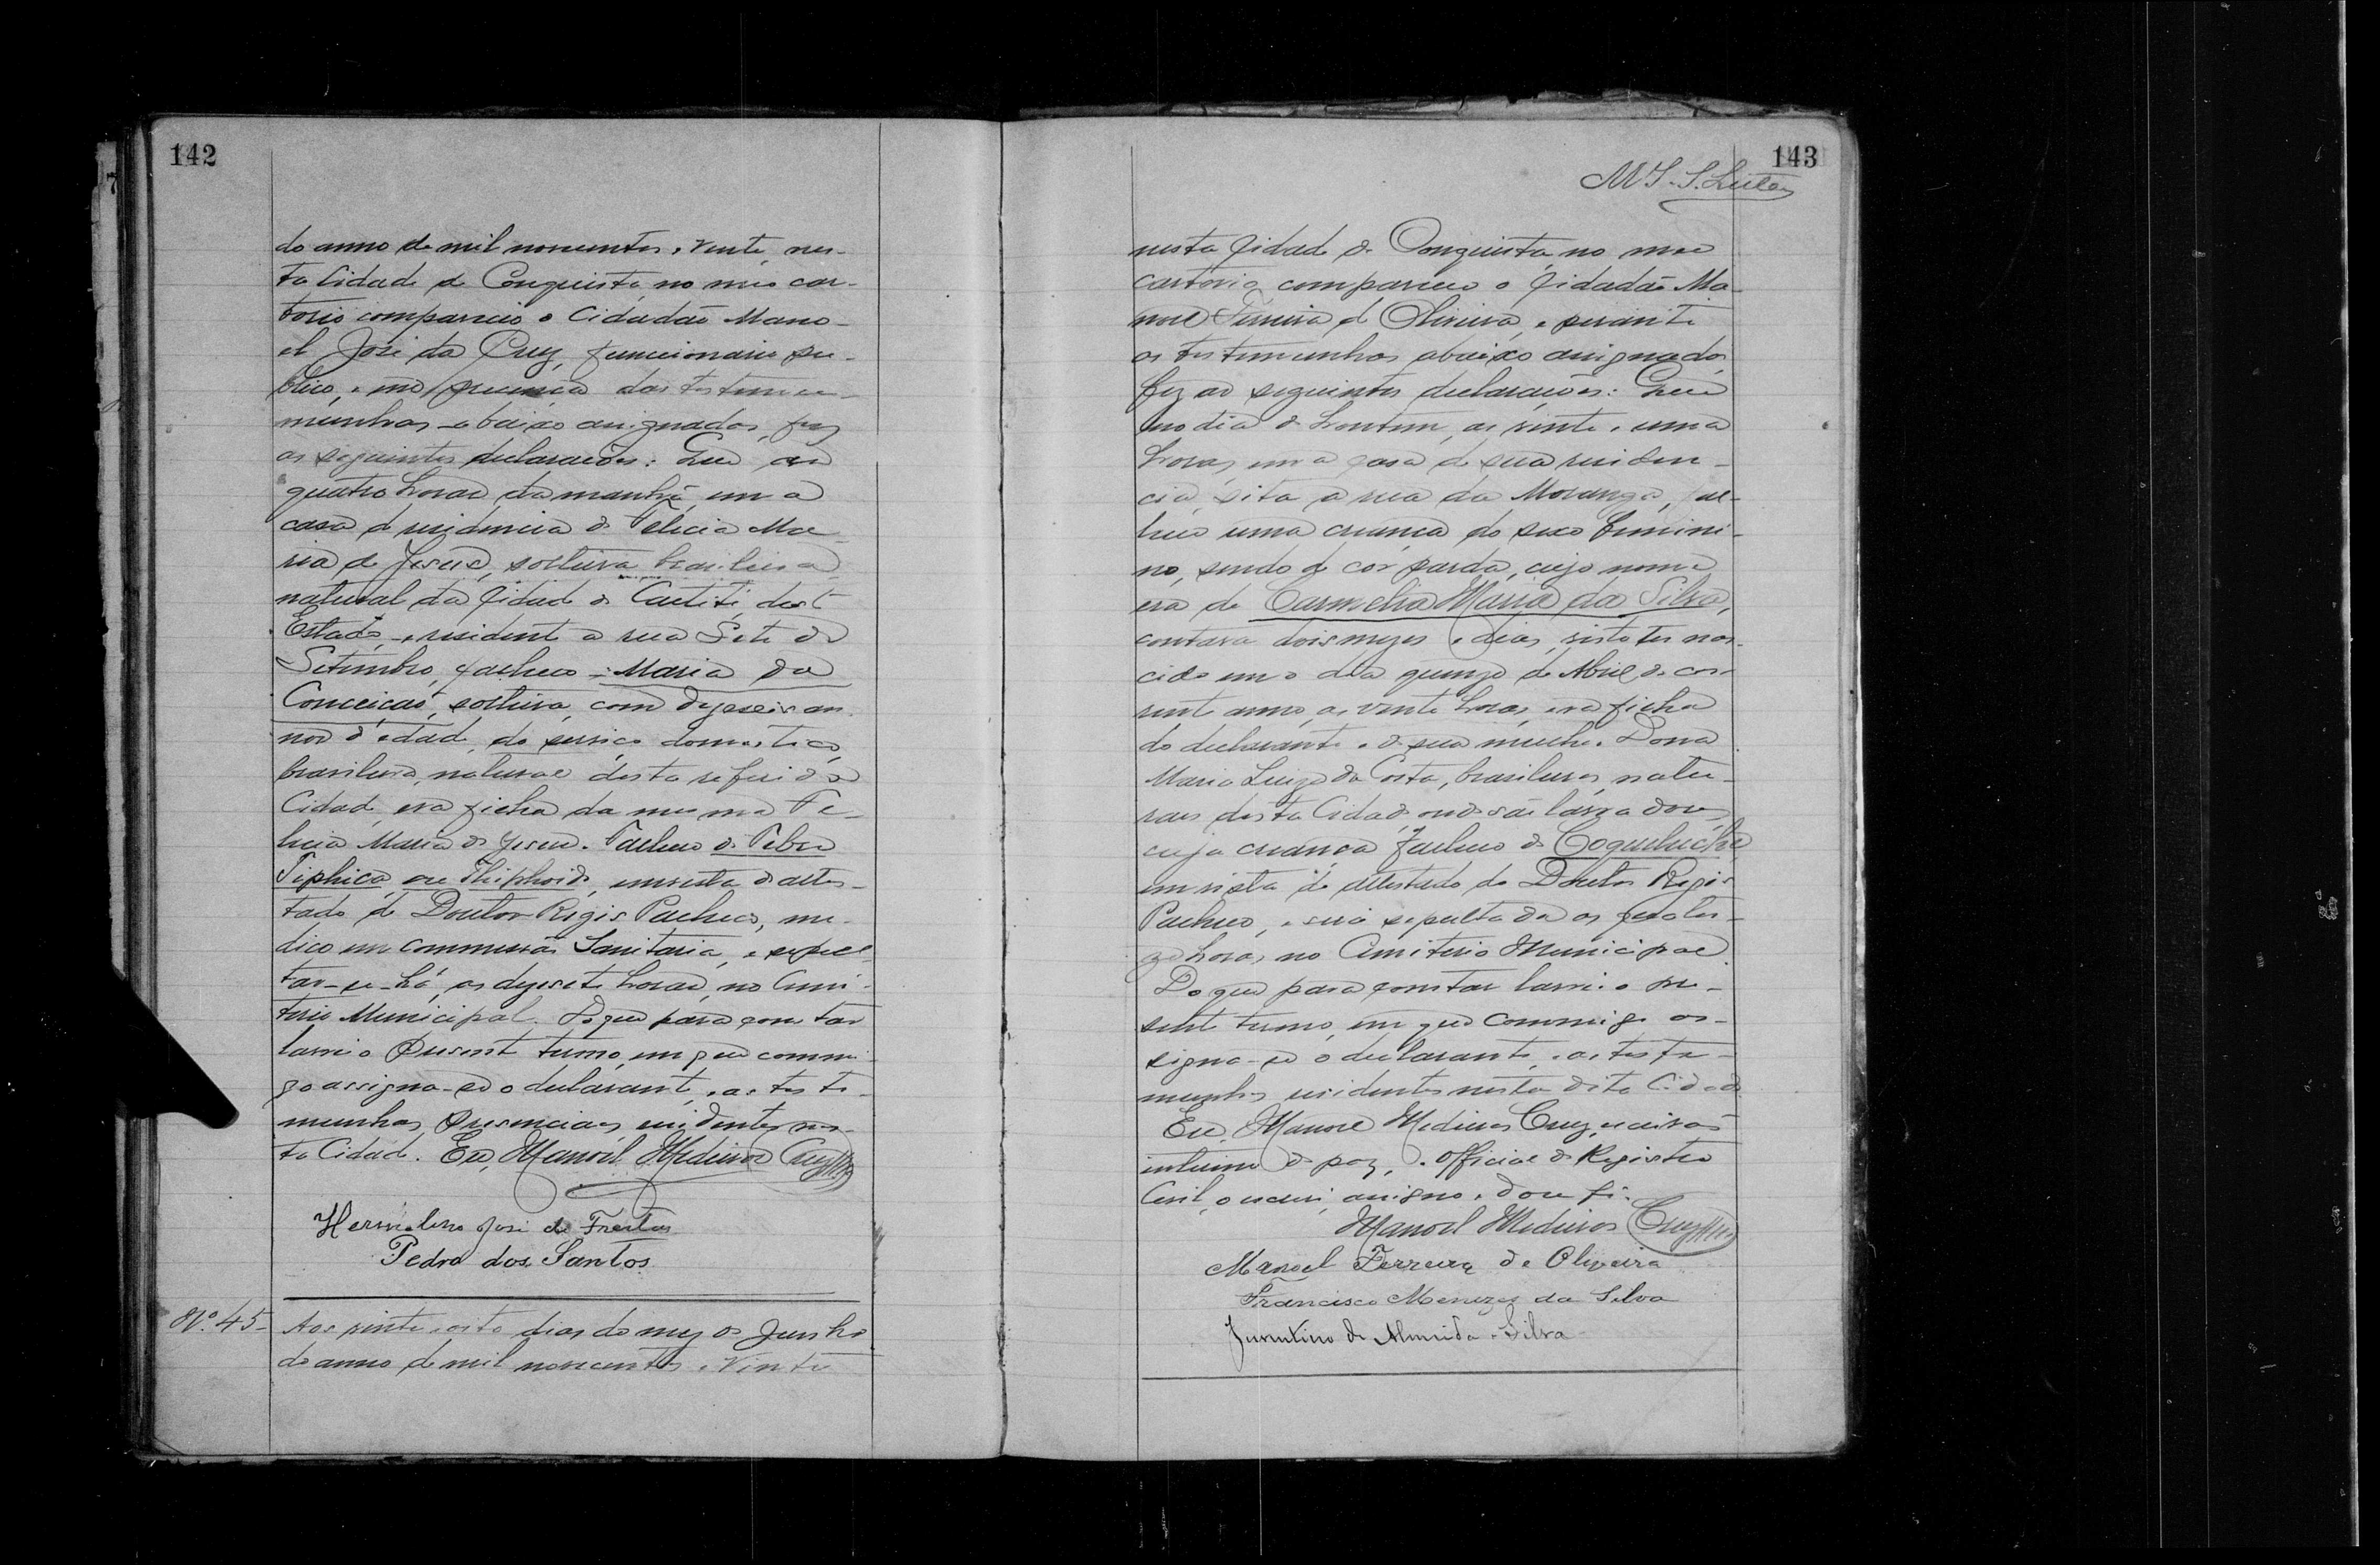 142
do anno de mil novecentos e vinte, nes-
ta Cidade de Conquista, no meu car-
torio compareceu o Cidadão Mano-
el José da Cruz, funccionario pu-
blico, e na presença das testemu-
munhas abaixo assignadas, fez
as seguintes declarações: Que as
quatro horas da manhã, em a
casa de residencia de Felicia Ma-
ria de Jesus, solteira, brasileira,
natural da Cidade de Caetité deste
Estado, e residente a rua Sete de
Setembro, falleceu - Maria da
Conceição, solteira, com dezeseis an-
nos d'edade, de serviço domestico,
brasileira, natural desta referida
Cidade, era filha da mesma Fe-
licia Maria de Jesus. Falleceu de Febre
Tiphica ou Thiphoide, em vista do attes-
tado do Doutor Regis Pacheco, me-
dico em commissão Sanitaria, e sepul-
tar-se-há, as dezesete horas, no Cemi-
terio Municipal. Do que para constar
lavrei o presente termo, em que commi-
go assigna-se o declarante, e as teste-
munhas presenciaes, residentes nes-
ta Cidade. Eu, Manoel Medeiros Cruz
Hermelino José de Freitas
Pedro dos Santos
Nº. 45- Aos vinte e oito dias do mez de Junho
do anno de mil novecentos e vinte
143
nesta Cidade de Conquista, no meu
cartorio, compareceu o Cidadão Ma-
noel Ferreira de Oliveira, e perante
as testemunhas abaixo assignadas
fez as seguintes declarações: Que
no dia de hontem, as vinte e uma
horas, em a casa de sua residen-
cia, sita a rua da Moranga, fal-
leceu uma criança do sexo femini-
no, sendo de cor parda, cujo nome
era de Carmelia Maria da Silva,
contava dois mezes e dias, visto ter nas-
cido em o dia quinze de Abril do cor-
rente anno, as vinte horas, era filha
do declarante e de sua mulher Dona
Maria Luiza da Costa, brasileiros, natu-
raes desta Cidade, onde são lavradores,
cuja criança falleceu de Coqueluche
em vista do attestado do Doutor Regis
Pacheco, e será sepultada as quator-
ze horas, no Cemiterio Municipal.
Do que para constar lavrei o pre-
sente termo, em que commigo as-
signa-se o declarante, e as teste-
munhas residentes nesta dita Cidade
Eu, Manoel Medeiros Cruz, escrivão
interino de paz, e official do Registro
Civil, o escrevi, assigno e dou fé.
Manoel Medeiros Cruz
Manoel Ferreira de Oliveira
Francisco Menezes da Silva
Juventino de Almeida e Silva